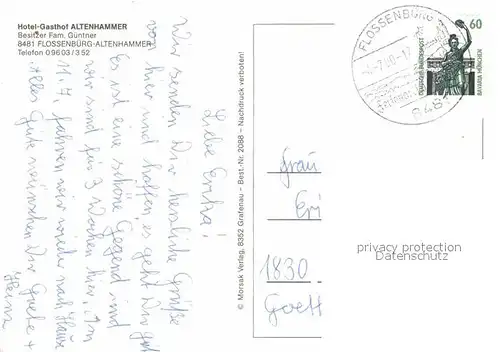 Hotel-Gasthof ALTENHAMMER
Besitzer Fam. Güntner
8481 FLOSSENBÜRG-ALTENHAMMER
Telefon 0 96 03 / 3 52
Liebe Erika!
Wir senden Dir herzliche Grüße
von hier und hoffen, es geht Dir gut
Es ist eine schöne Gegend und
wir sind für 3 Wochen hier. Am
11. 7. fahren wir wieder nach Hause
Alles Gute wünschen Dir Grete +
Heinz
© Morsak Verlag, 8352 Grafenau – Best.-Nr. 2088 – Nachdruck verboten!
FLOSSENBÜRG
8481
60
DEUTSCHE BUNDESPOST
BAVARIA MÜNCHEN
Frau
Eri
1830
Goett
privacy protection
Datenschutz